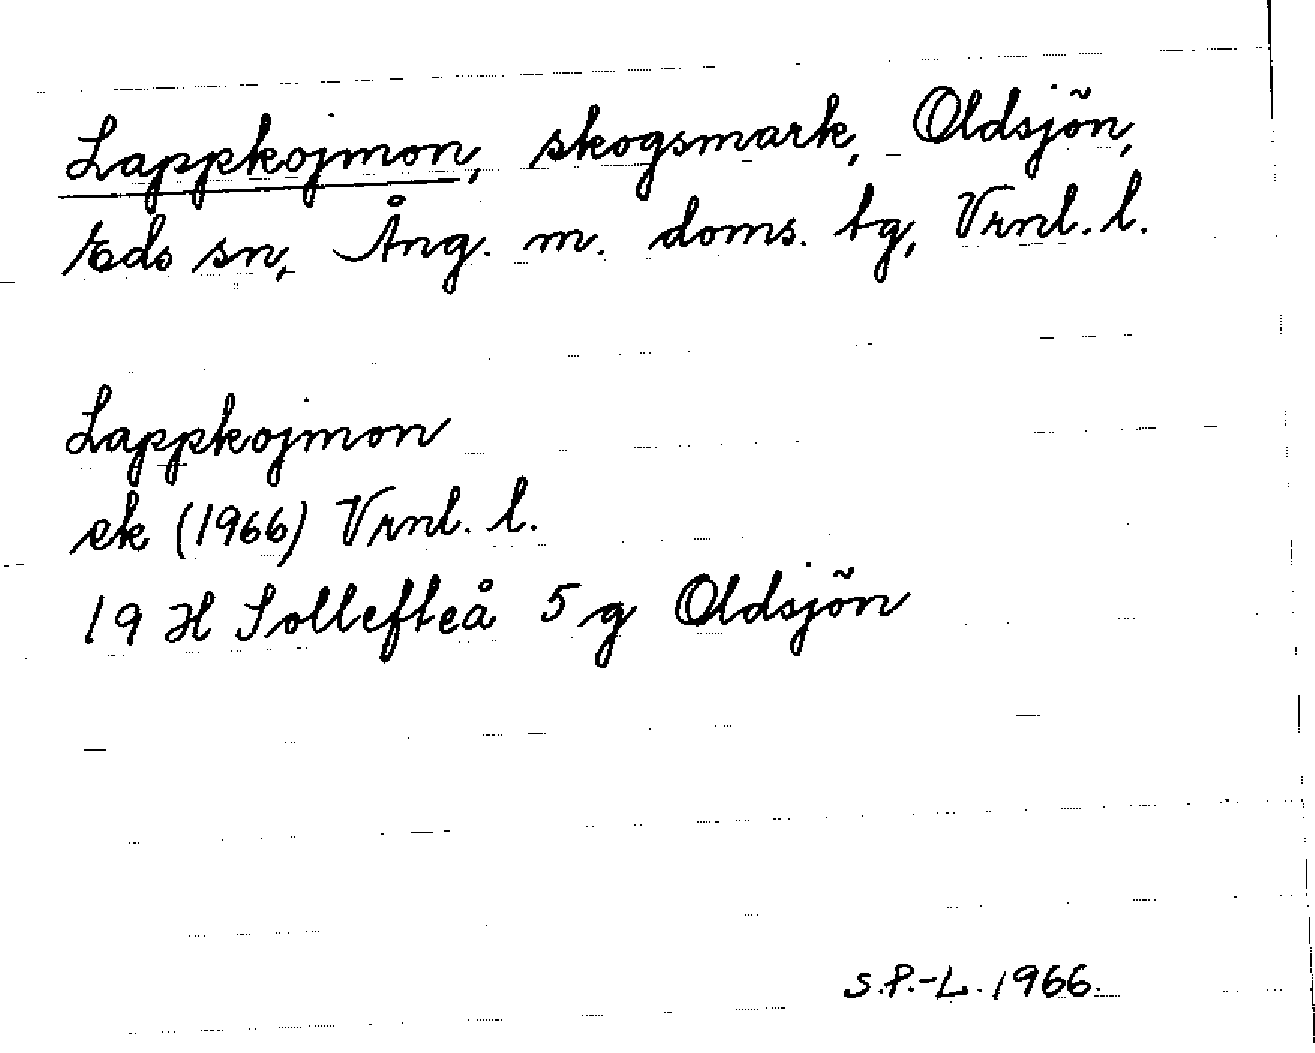 Lappkojmon, skogsmark, Oldsjön,
Eds sn, Ång. m. doms. tg, Vrnl. l.
Lappkojmon
ek (1966) Vrnl. l.
19 H Sollefteå 5 g Oldsjön
S.P.-L. 1966.